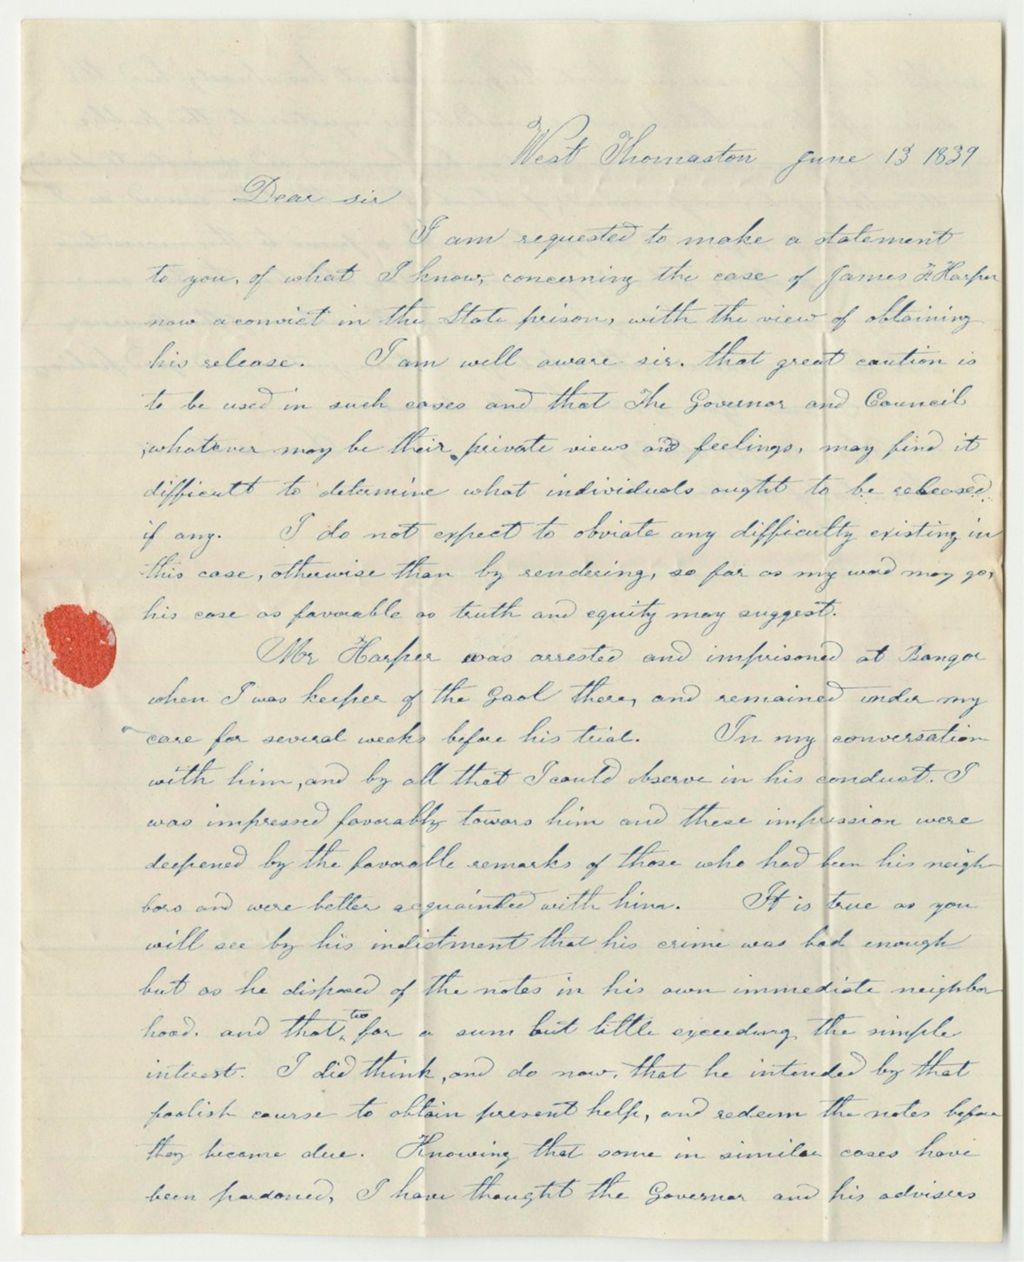 West Thomaston June 13 1839
Dear sir
I am requested to make a statement
to you, of what I know, concerning the case of James F. Harper
now a convict in the State prison, with the view of obtaining
his release. I am well aware sir. that great caution is
to be used in such cases and that The Governor and Council
whatever may be their private views and feelings, may find it
difficult to determine what individuals ought to be released
if any. I do not expect to obviate any difficulty existing in
this case, otherwise than by rendering, so far as my word may go,
his case as favorable as truth and equity may suggest.
Mr Harper was arrested and imprisoned at Bangor
when I was keeper of the Gaol there, and remained under my
care for several weeks before his trial. In my conversation
with him, and by all that I could observe in his conduct. I
was impressed favorably towars him and these impression were
deepened by the favorable remarks of those who had been his neigh-
bors and were better acquainted with him. It is true as you
will see by his indictment that his crime was bad enough
but as he disposed of the notes in his own immediate neighbor
hood. and that too for a sum but little exceeding the simple
interest. I did think, and do now, that he intended by that
foolish course to obtain present help, and redeem the notes before
they became due. Knowing that some in similar cases have
been pardoned, I have thought the Governor and his advisers